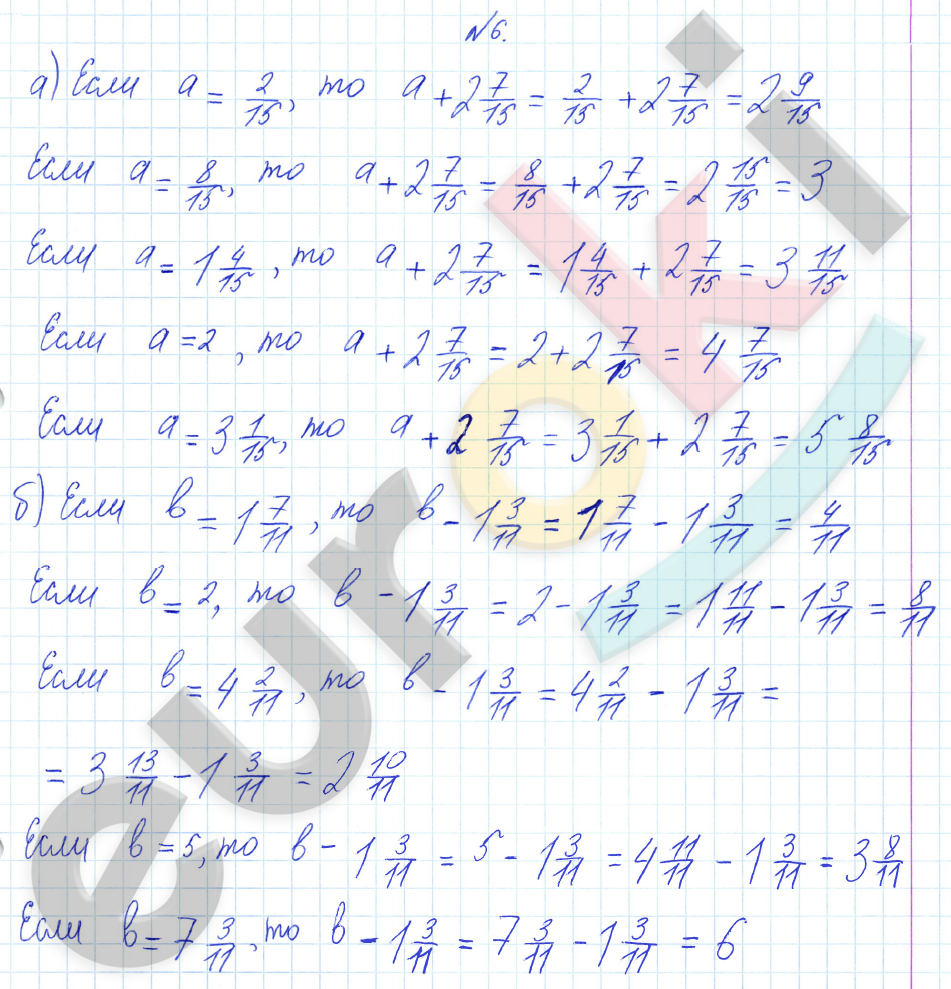 №6.
а) Если a = 2/15, то a + 2 7/15 = 2/15 + 2 7/15 = 2 9/15
Если a = 8/15, то a + 2 7/15 = 8/15 + 2 7/15 = 2 15/15 = 3
Если a = 1 4/15, то a + 2 7/15 = 1 4/15 + 2 7/15 = 3 11/15
Если a = 2, то a + 2 7/15 = 2 + 2 7/15 = 4 7/15
Если a = 3 1/15, то a + 2 7/15 = 3 1/15 + 2 7/15 = 5 8/15
б) Если в = 1 7/11, то в - 1 3/11 = 1 7/11 - 1 3/11 = 4/11
Если в = 2, то в - 1 3/11 = 2 - 1 3/11 = 1 11/11 - 1 3/11 = 8/11
Если в = 4 2/11, то в - 1 3/11 = 4 2/11 - 1 3/11 =
= 3 13/11 - 1 3/11 = 2 10/11
Если в = 5, то в - 1 3/11 = 5 - 1 3/11 = 4 11/11 - 1 3/11 = 3 8/11
Если в = 7 3/11, то в - 1 3/11 = 7 3/11 - 1 3/11 = 6
euroki